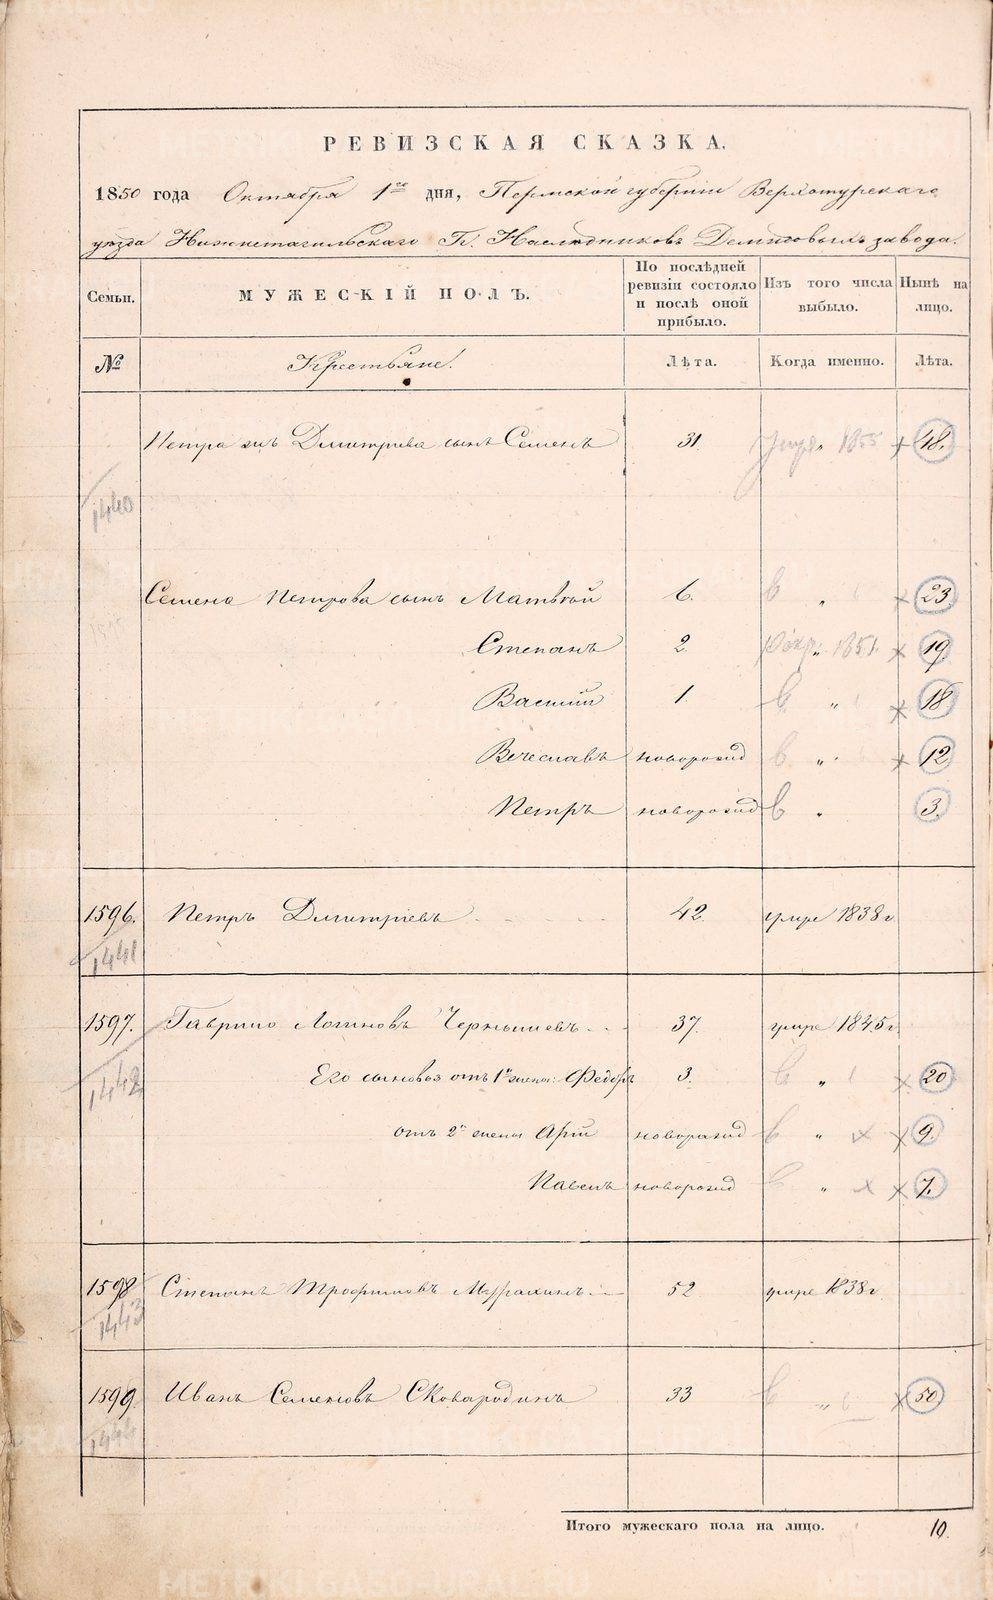 РЕВИЗСКАЯ СКАЗКА.
1850 года Октября 1го дня, Пермской губернии Верхотурскаго
уезда Нижнетагильскаго Гг. Наследников Демидовыхъ завода.
Семьи. МУЖЕСКІЙ ПОЛЪ. По послѣдней ревизіи состояло и послѣ оной прибыло. Изъ того числа выбыло. Нынѣ на лицо.
№ Крестьяне. Лѣта. Когда именно. Лѣта.
Петра Дмитріева сынъ Семенъ 31. 1855 48.
1440
Семена Петрова сынъ Матвей 6. в „ 23
Степанъ 2. „ 1851. 19
Василий 1. в „ 18
Вечеславъ новорожд в „ 12
Петръ новорожд в „ 3.
1596. Петръ Дмитріевъ 42. умре 1838 г.
1441
1597. Гаврило Логиновъ Чернышевъ 37. умре 1845 г.
1442 Его сыновья отъ 1й жены: Федоръ 3. в „ 20
отъ 2й жены новорожд в „ 9.
Павелъ новорожд в „ 7.
1598 Степанъ Трофимовъ 52 умре 1838 г.
1443
1599 Иванъ Семеновъ Сковародинъ 33 в „ 50
1444
Итого мужескаго пола на лицо. 10.
METRIKI.GASO-URAL.RU